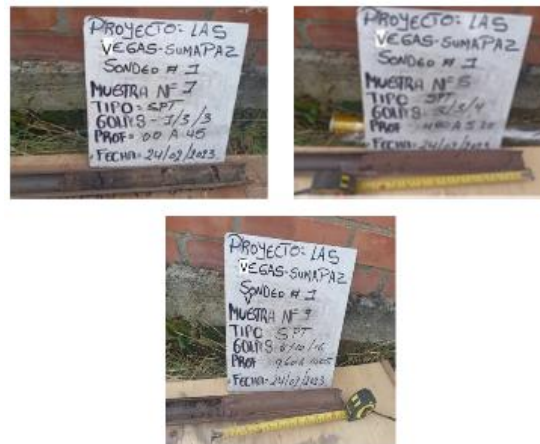 PROYECTO: LAS
VEGAS-SUMAPAZ
SONDEO # 1
MUESTRA Nº 1
TIPO = SPT
GOLPES - 1/3/3
PROF = 00 A 45
FECHA= 24/02/2023
PROYECTO: LAS
VEGAS-SUMAPAZ
SONDEO # 1
MUESTRA Nº
TIPO: SPT
GOLPES /3/4
PROF=
FECHA= 24/02/2023
PROYECTO: LAS
VEGAS-SUMAPAZ
SONDEO # 1
MUESTRA Nº 9
TIPO SPT
GOLPES /10/16
PROF
FECHA= 24/02/2023